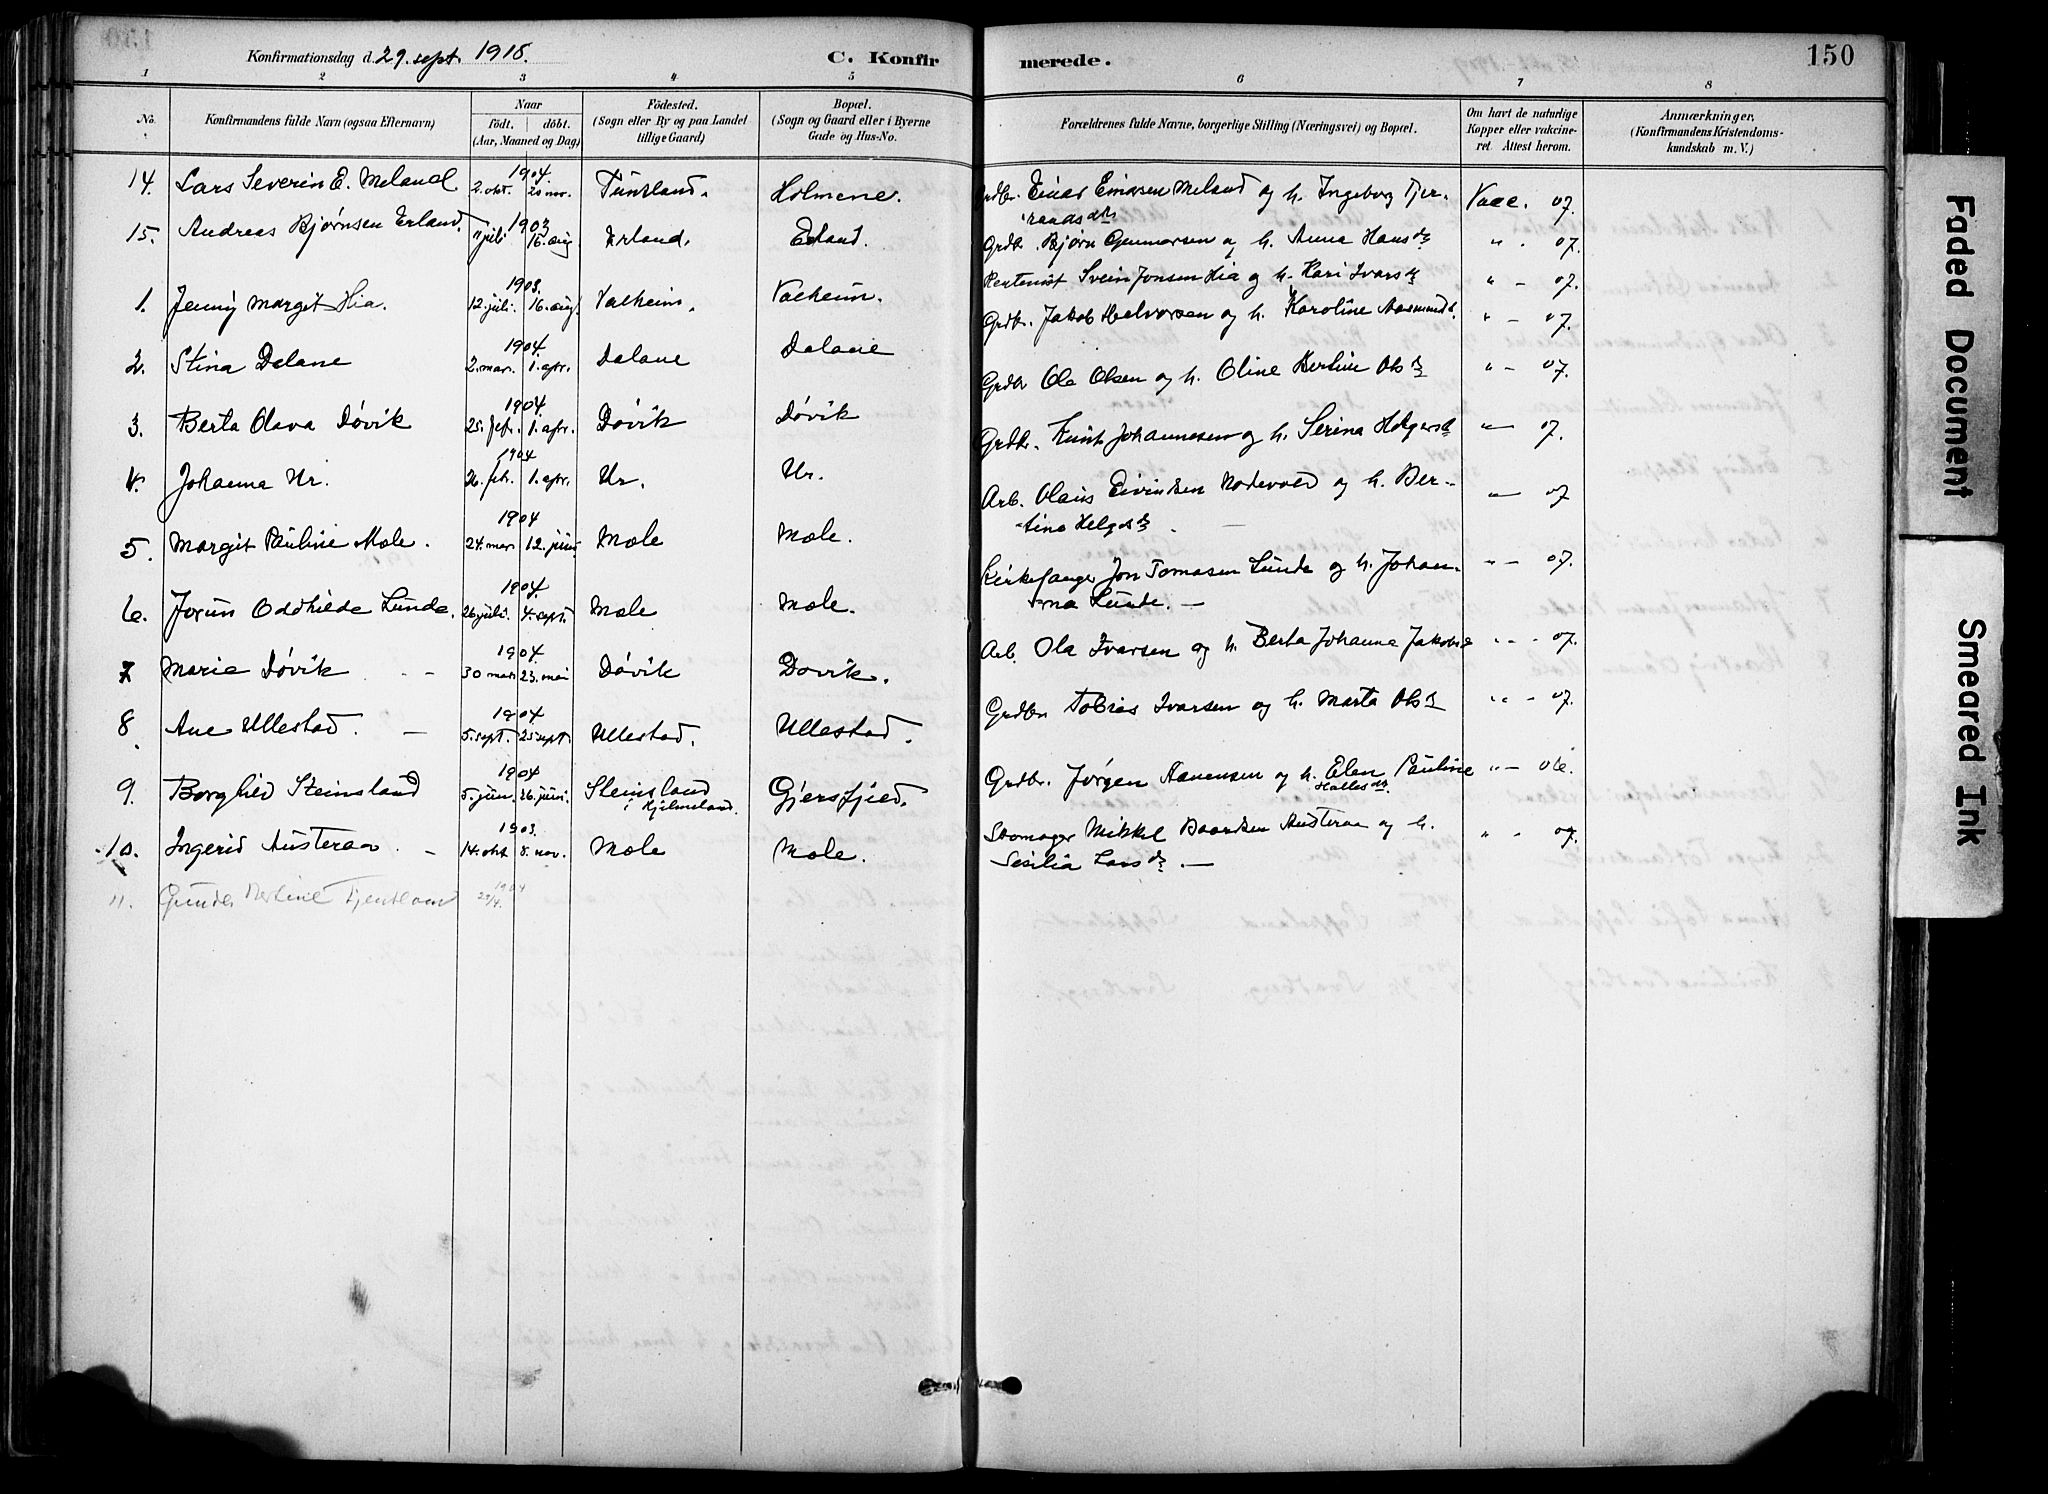 Konfirmationsdag d. 29. sept. 1918.
C. Konfirmerede.
150
1 2 3 4 5 6 7 8
No.
Konfirmandens fulde Navn (ogsaa Efternavn)
Naar
födt. döbt.
(Aar, Maaned og Dag)
Födested.
(Sogn eller By og paa Landet
tillige Gaard)
Bopæl.
(Sogn og Gaard eller i Byerne
Gade og Hus-No.
Forældrenes fulde Navne, borgerlige Stilling (Næringsvei) og Bopæl.
Om havt de naturlige
Kopper eller vakcine-
ret. Attest herom.
Anmærkninger,
(Konfirmandens Kristendoms-
kundskab m. V.)
1904
14. Lars Severin E. Meland 2. okt. 20 nov. Tuntland. Holmene. Grdbr. Einar Einarsen Meland og h. Ingeborg Tjer- Vacc. 07.
randsdtr
1903
15. Andreas Bjørnsen Erland. 11 juli 16. aug. Erland. Erland. Grdbr. Bjørn Gunnarsen og h. Anna Hansdtr " - 07.
1903.
1. Jenny Margit Hia. 12. juli. 16. aug. Valheim. Valheim. Rentenist Svein Jonsen Hia og h. Kari Ivarsdtr " - 07.
1904
2. Stina Dalane 2. mar. 1. apr. Dalane Dalane Grdbr. Jakob Halvorsen og h. Karoline Aasmundsd. " - 07.
1904.
3. Berta Olava Døvik 25. febr. 1. apr. Døvik Døvik Grdbr Ole Olsen og h. Oline Bertine Olsdtr " - 07.
1904
4. Johanna Ur. 26. febr. 1. apr. Ur. Ur. Grdbr. Knut Johannesen og h. Serina Holgersdtr " - 07.
1904
5. Margit Pauline Mæle. 24. mar. 12. juni Mæle Mæle. Arb. Olaus Eivindsen Nodevold og h. Ber- " - 07
tina Helgesdtr. —
1904.
6. Jorun Oddhilde Lunde. 26 juli. 4. sept. Mæle Mæle. Kirkesanger Jon Tomasen Lunde og h. Johan- " - 07.
na Lunde. —
1904.
7 Marie Døvik - - 30 mar. 23. mai Døvik Døvik. Arb. Ola Ivarsen og h. Berta Johanna Jakobsd " - 07.
1904.
8. Ane Ullestad. - 5. sept. 25 sept. Ullestad. Ullestad. Grdbr Tobias Ivarsen og h. Marta Olsdtr " - 07.
1904
9. Borghild Steinsland 5. juni. 26. juni. Steinsland Gjersfjied. Grdbr. Jørgen Aanensen og h. Elen Pauline " - 06.
i Hjelmeland. Hallesdtr.
1903.
10. Ingerid Austeraa. - 14. okt 8. nov. Mæle Mæle. Skomager Mikkel Baardsen Austeraa og h. " - 07.
Sesilia Larsdtr. —
1904
11. 29/4.
Faded Document
Smeared Ink